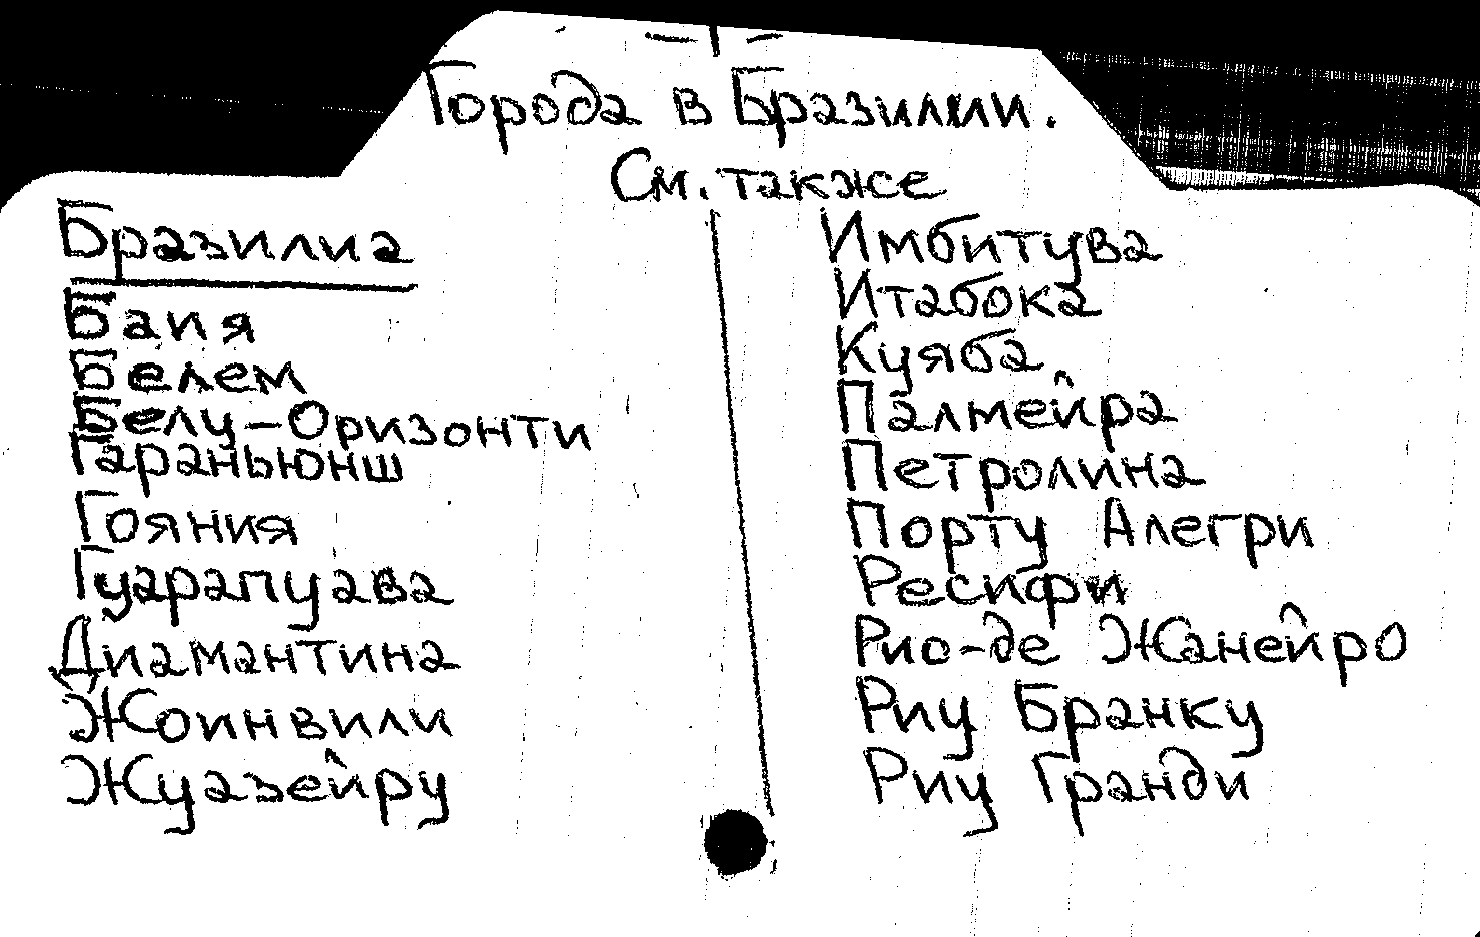 Города в Бразилии.
См. также
Бразилиа
Баия
Белем
Белу-Оризонти
Гараньюнш
Гояния
Гуарапуава
Диамантина
Жоинвили
Жуазейру
Имбитува
Итабока
Куяба
Палмейра
Петролина
Порту Алегри
Ресифи
Рио-де Жанейро
Риу Бранку
Риу Гранди